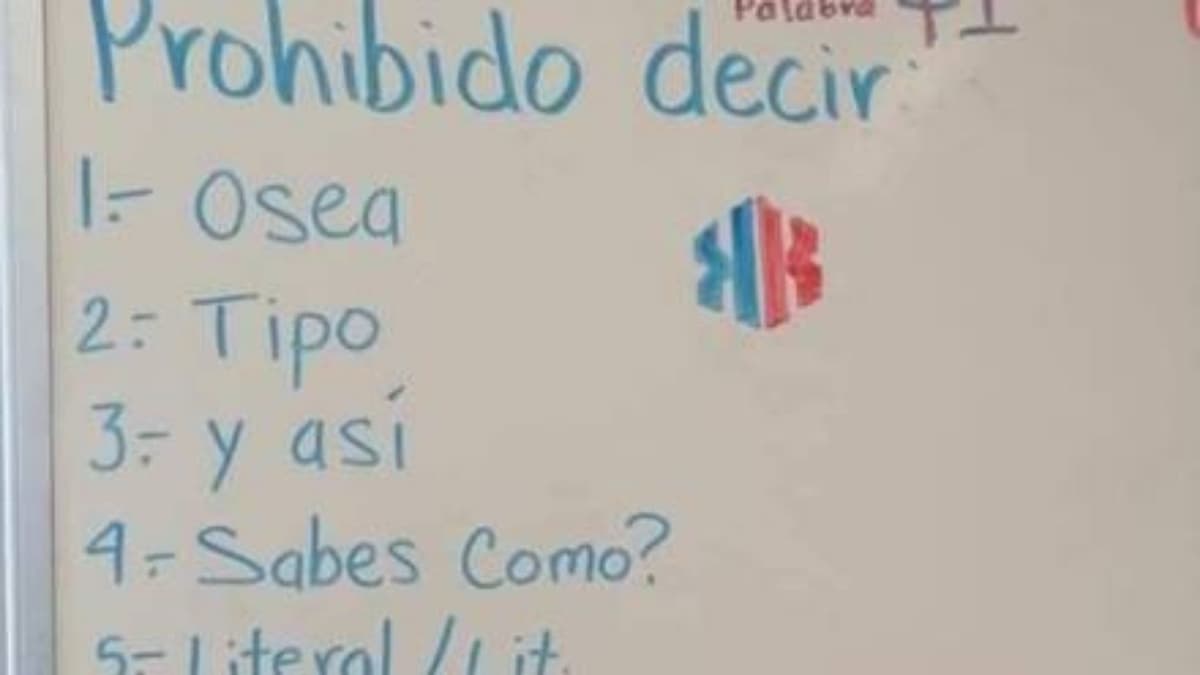 Palabra $1
Prohibido decir:
1.- Osea
2.- Tipo
3.- y así
4.- Sabes Como?
5.- Literal / Lit.